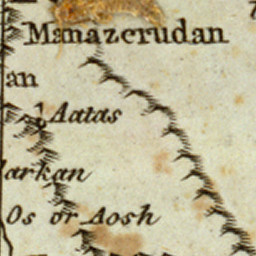 Manazerudan
an
Aatas
arkan
Os or Aosh